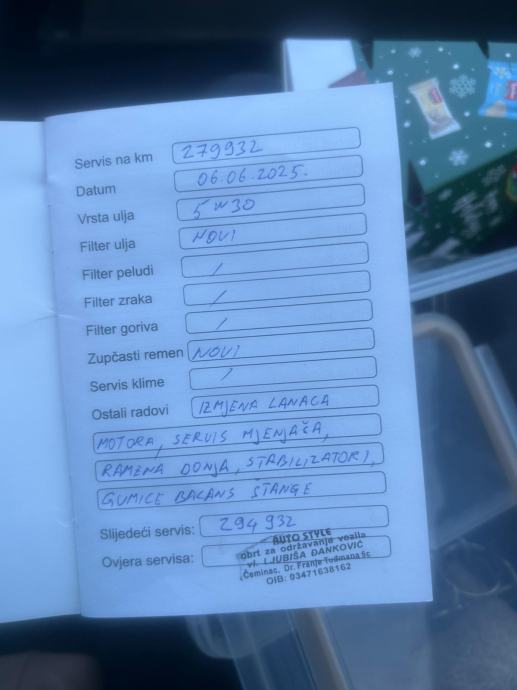 Servis na km 279932
Datum 06.06.2025.
Vrsta ulja 5W30
Filter ulja NOVI
Filter peludi /
Filter zraka /
Filter goriva /
Zupčasti remen NOVI
Servis klime /
Ostali radovi IZMJENA LANACA
MOTORA, SERVIS MJENJAČA,
RAMENA DONJA, STABILIZATORI,
GUMICE BALANS ŠTANGE
Slijedeći servis: 294 932
Ovjera servisa:
AUTO STYLE
obrt za održavanje vozila
vl. LJUBIŠA DANKOVIĆ
Čeminac, Dr. Franje Tuđmana 5c
OIB: 03471638162